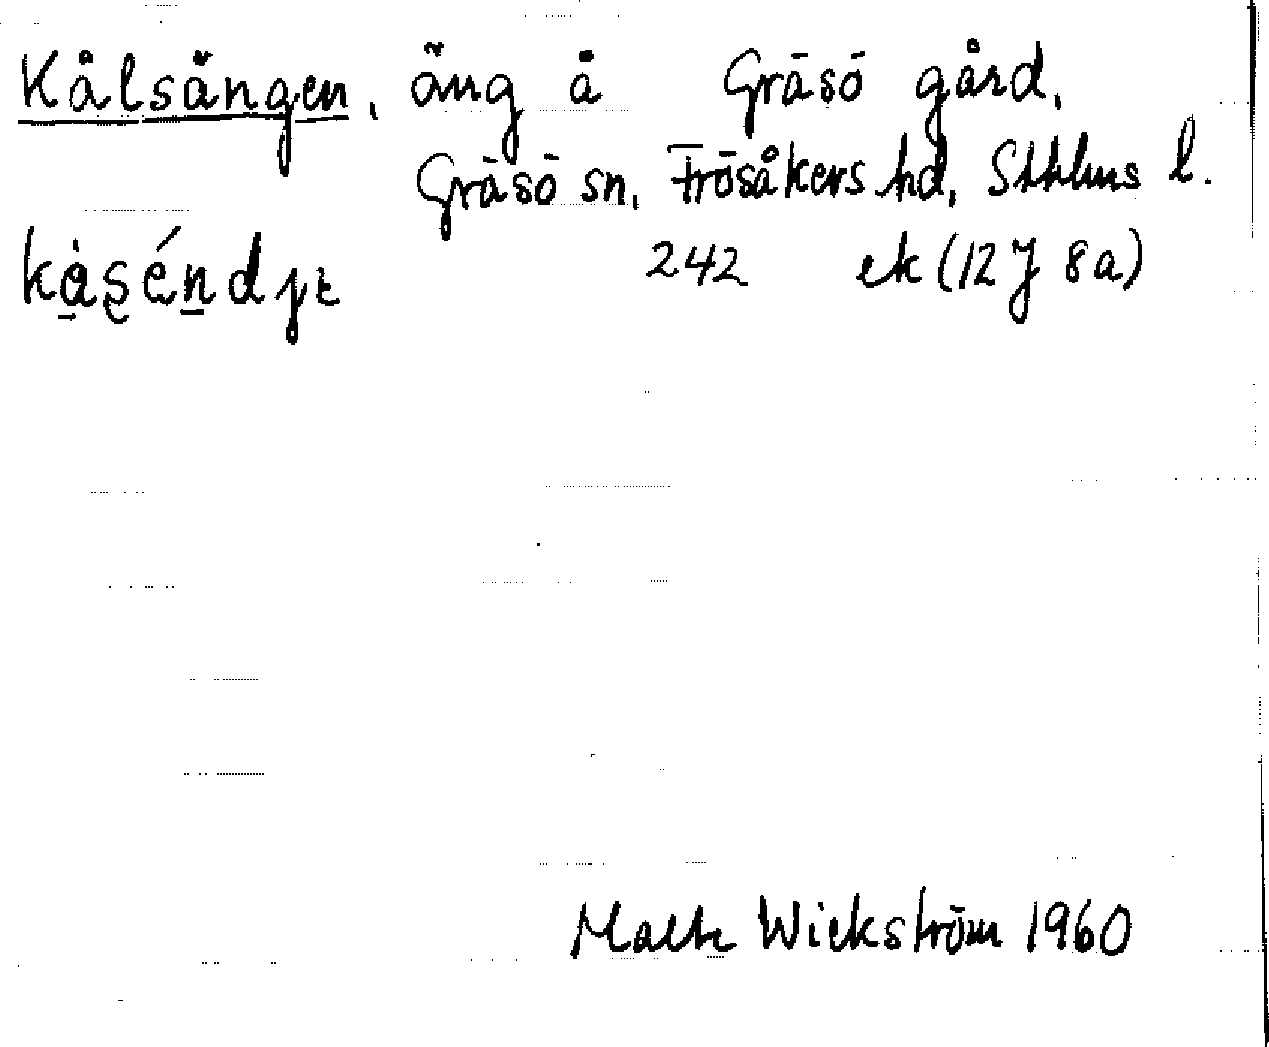 Kålsängen, äng å Gräsö gård,
Gräsö sn, Frösåkers hd, Sthlms l.
kȧʂéndjɛ 242 ek (12J 8a)
Malte Wickström 1960